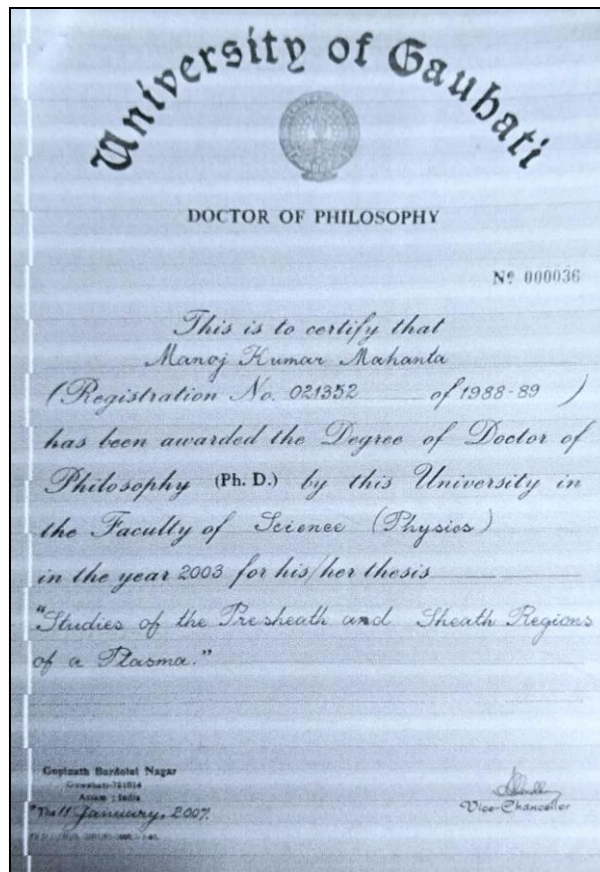 University of Gauhati
DOCTOR OF PHILOSOPHY
Nº 000036
This is to certify that
Manoj Kumar Mahanta
(Registration No. 021352 of 1988-89 )
has been awarded the Degree of Doctor of
Philosophy (Ph. D.) by this University in
the Faculty of Science (Physics)
in the year 2003 for his/her thesis
"Studies of the Presheath and Sheath Regions
of a Plasma."
Gopinath Bardoloi Nagar
Guwahati-781014
Assam ; India
The 11 January, 2007.
Vice-Chancellor